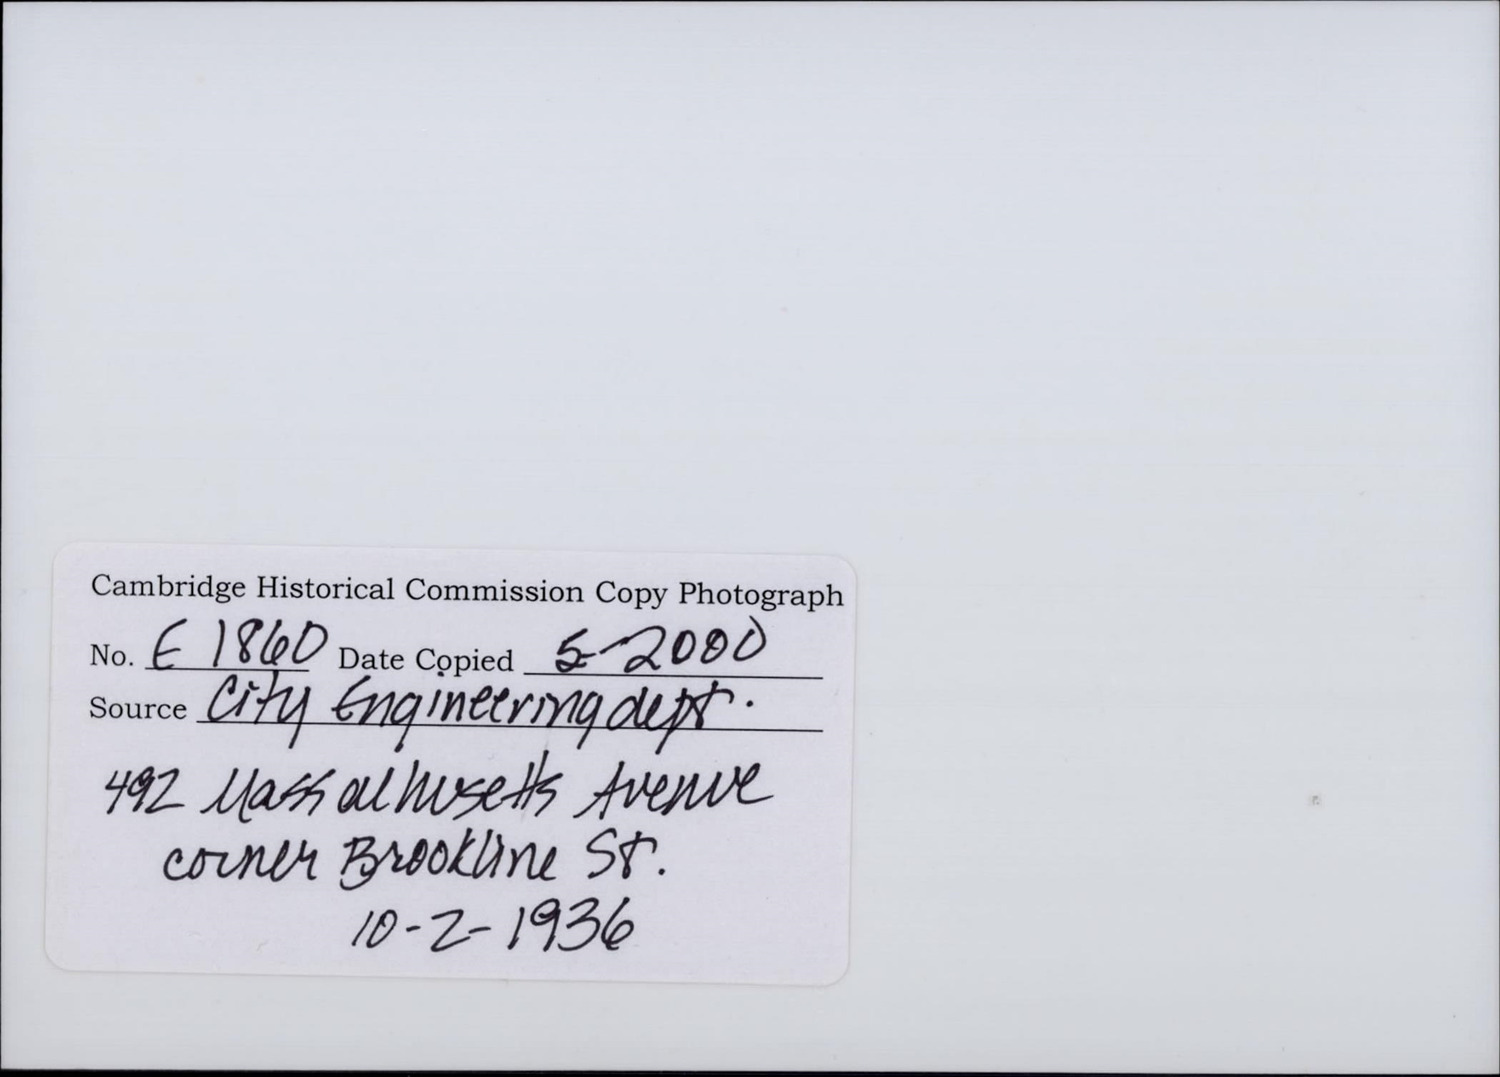 Cambridge Historical Commission Copy Photograph
No. E 1860 Date Copied 5-2000
Source City Engineering dept.
492 Massachusetts Avenue
corner Brookline St.
10-2-1936